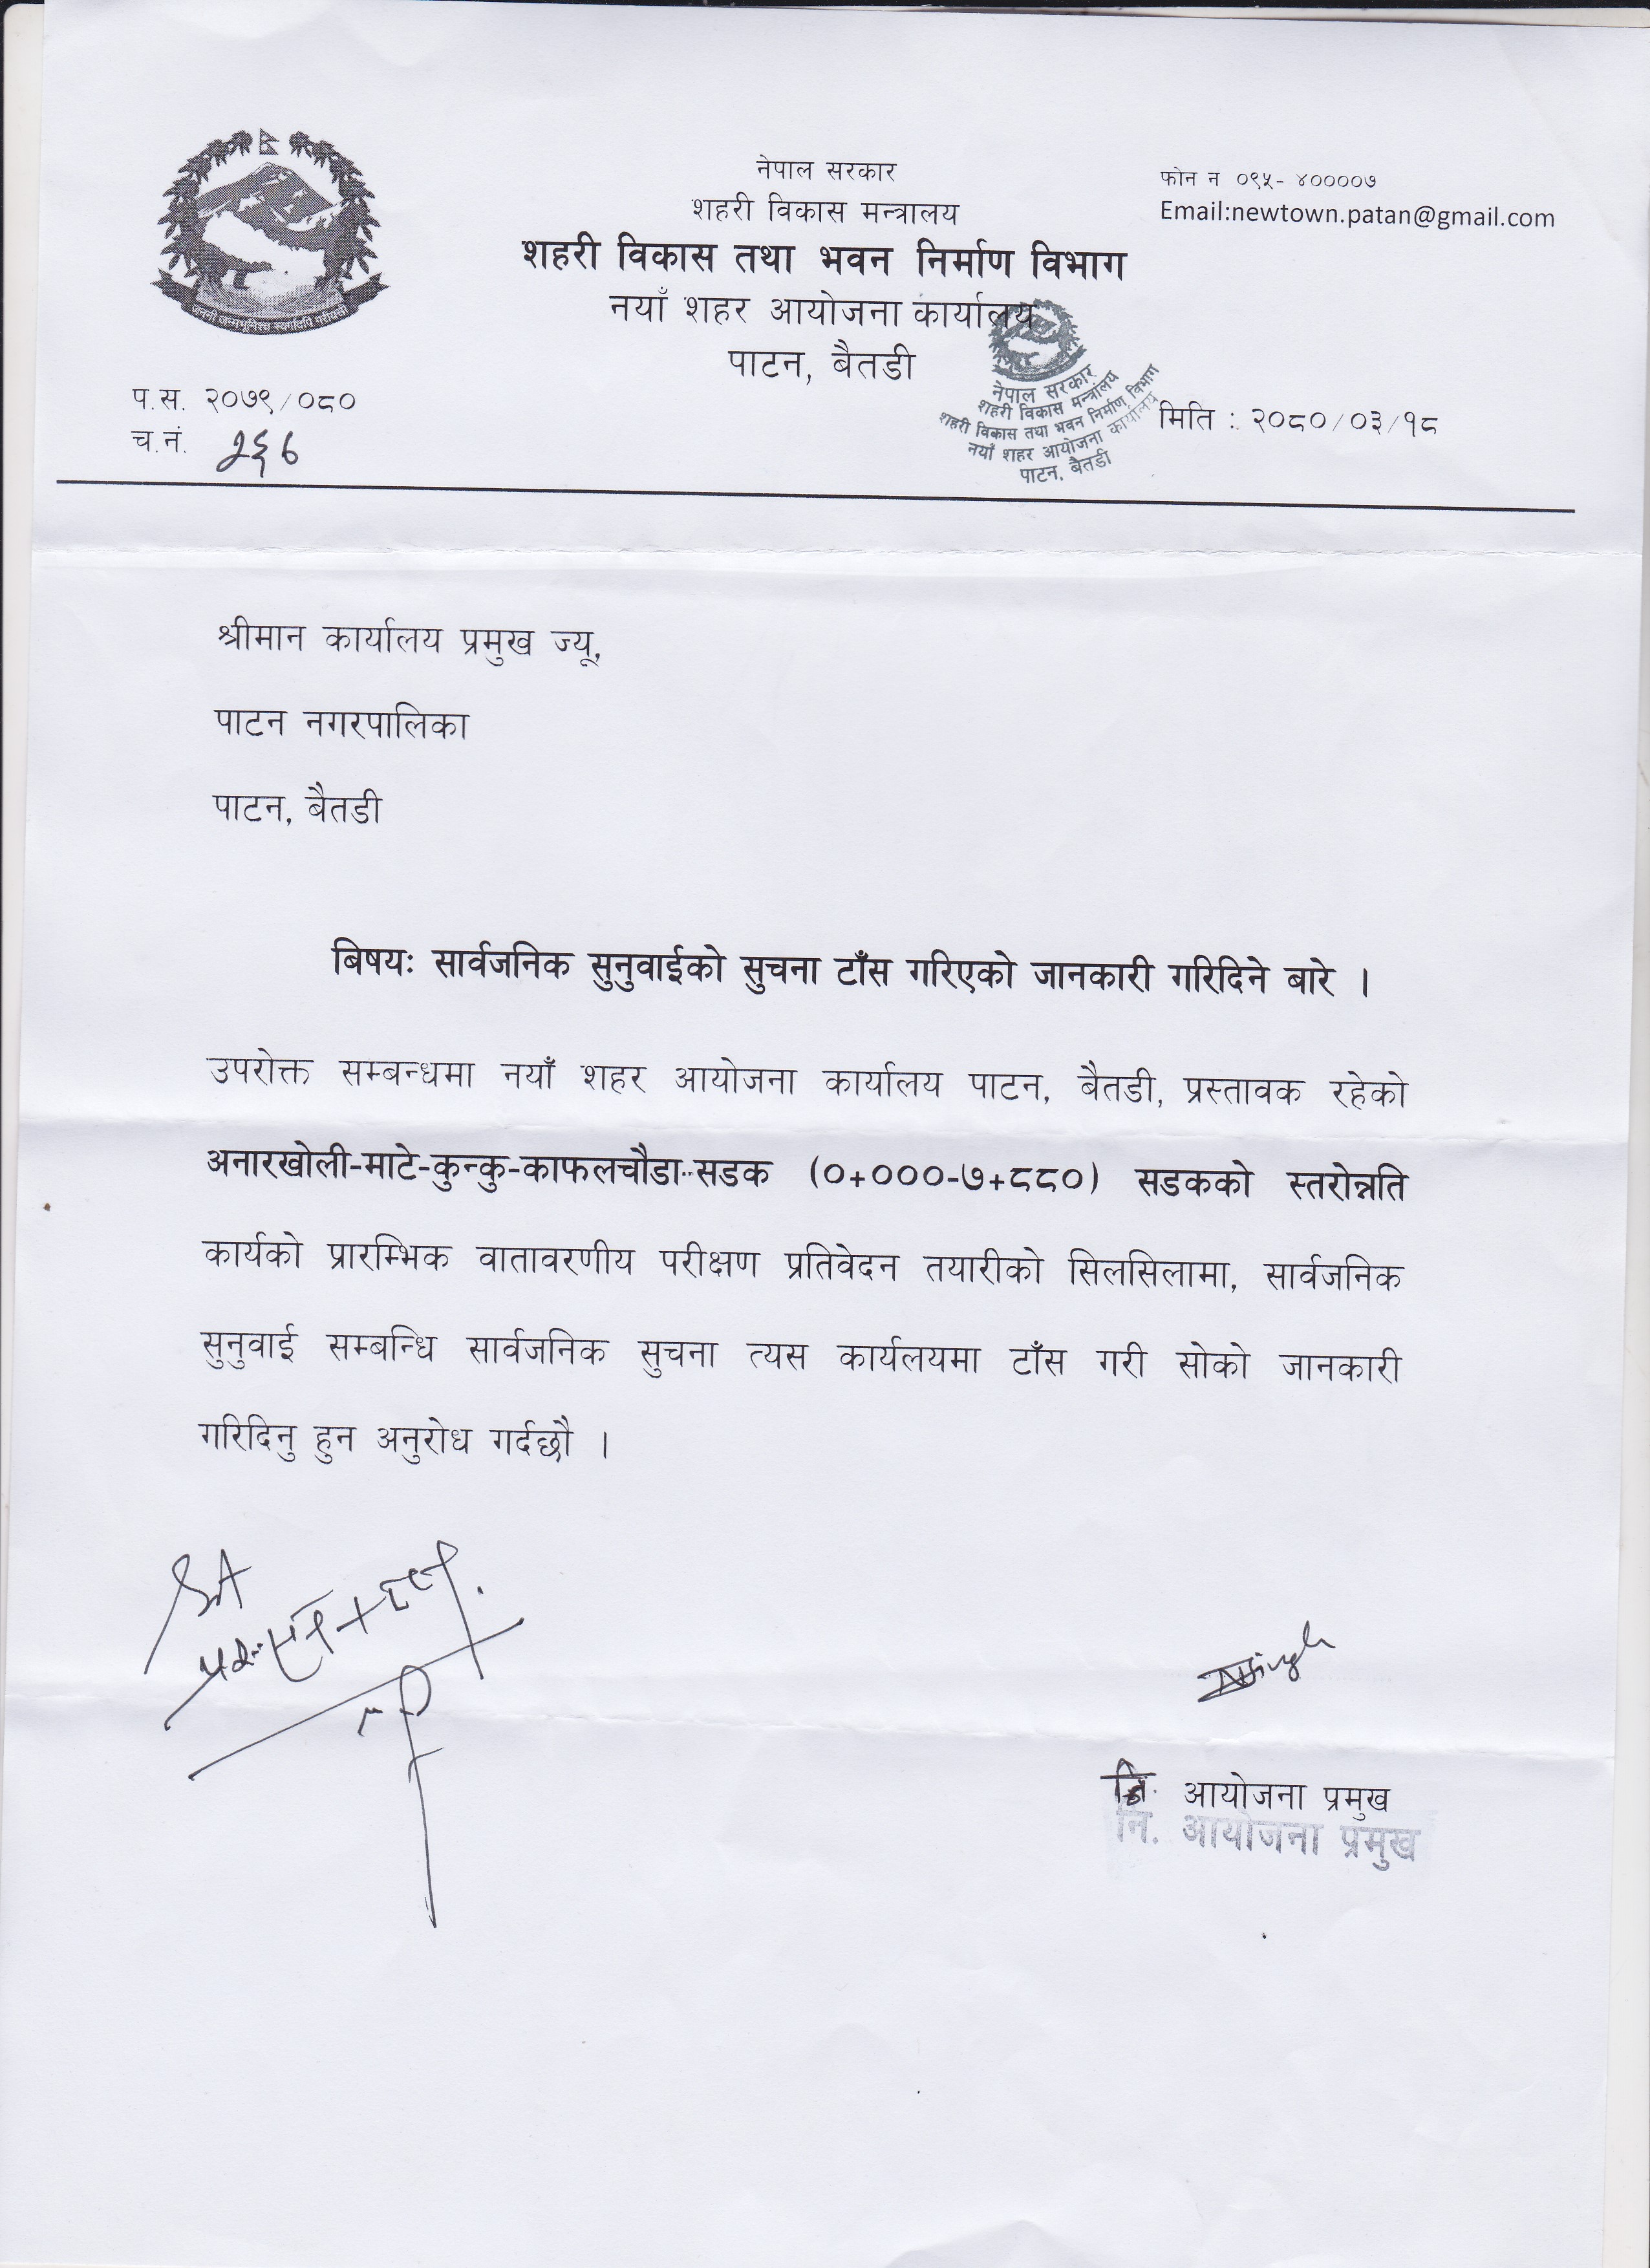 नेपाल सरकार
शहरी विकास मन्त्रालय
शहरी विकास तथा भवन निर्माण विभाग
नयाँ शहर आयोजना कार्यालय
पाटन, बैतडी
फोन न ०९५- ४००००७
Email:newtown.patan@gmail.com
जननी जन्मभूमिश्च स्वर्गादपि गरीयसी
नेपाल सरकार
शहरी विकास मन्त्रालय
शहरी विकास तथा भवन निर्माण विभाग
नयाँ शहर आयोजना कार्यालय
पाटन, बैतडी
प.स. २०७९/०८०
च.नं.
मिति : २०८०/०३/१८
श्रीमान कार्यालय प्रमुख ज्यू,
पाटन नगरपालिका
पाटन, बैतडी
बिषयः सार्वजनिक सुनुवाईको सुचना टाँस गरिएको जानकारी गरिदिने बारे ।
उपरोक्त सम्बन्धमा नयाँ शहर आयोजना कार्यालय पाटन, बैतडी, प्रस्तावक रहेको
अनारखोली-माटे-कुन्कु-काफलचौडा सडक (०+०००-७+८८०) सडकको स्तरोन्नति
कार्यको प्रारम्भिक वातावरणीय परीक्षण प्रतिवेदन तयारीको सिलसिलामा, सार्वजनिक
सुनुवाई सम्बन्धि सार्वजनिक सुचना त्यस कार्यलयमा टाँस गरी सोको जानकारी
गरिदिनु हुन अनुरोध गर्दछौ ।
नि. आयोजना प्रमुख
नि. आयोजना प्रमुख